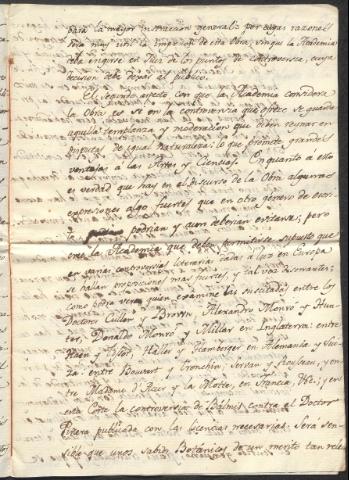 para la mayor instruccion general: por cuyas razones
sera mas util la impresion de esta Obra, sin que la Academia
deba erigirse en Juez de los puntos de controversia, cuya
decision debe dejar al publico.
El segundo aspecto con que la Academia considera
la Obra, es si en la controversia que ofrece se guarda
aquella templanza y moderacion que deben reynar en
disputas de igual naturaleza: lo que promete grandes
ventajas à las Artes y Ciencias. En quanto a esto
es verdad que hay en el discurso de la Obra algunas
expresiones algo fuertes que en otro genero de
se podrian y aun deberan evitarse; pero
cree la Academia que deben permitirse supuesto que
en varias controversias literarias dadas à luz en Europa
se hallan expresiones mas fuertes, y tal vez
como podrá ver quien examine las suscitadas entre los
Doctores Cullen y Brown, Alexandro Monro y Hun-
ter, Donaldo Monro y Millar en Inglaterra: entre
Haen y Tysot, Haller y Hamberger en Alemania, y Sui-
za: entre Bouvart y Tronchin, Servan y y en-
tre Madame d'Acier y la Motte, en Francia, &c.; y en
esta Corte la controversia de Balmis contra el Doctor
Piñera publicada con las licencias necesarias. Será sen-
sible que unos sabios Botánicos de un merito tan rele-